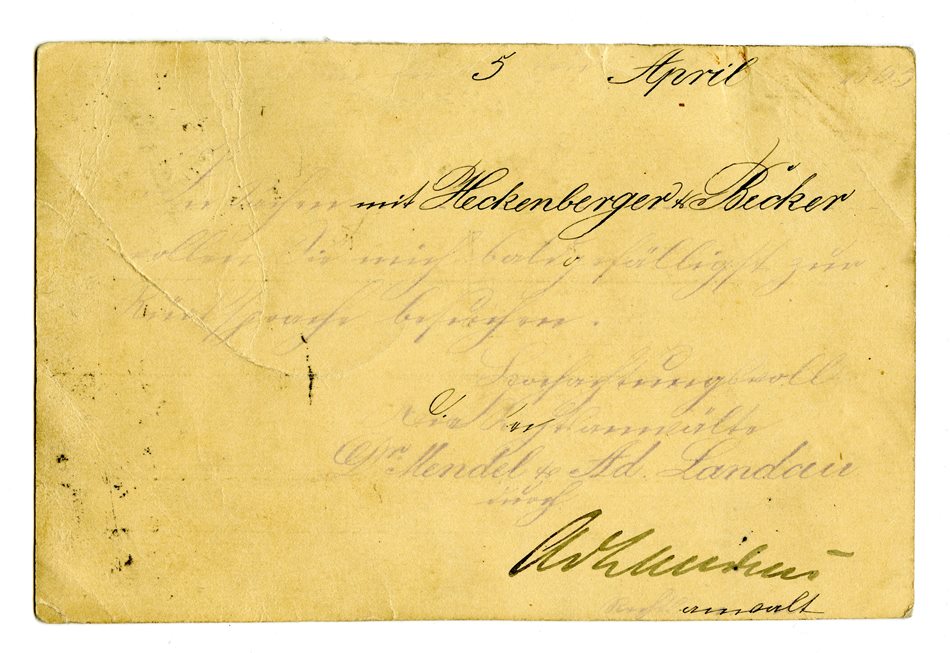 5 April
In Sachen mit Heckenberger & Becker
wollen Sie mich baldgefälligst zur
Rücksprache besuchen.
Hochachtungsvoll
Die Rechtsanwälte
Dr. Mendel & Ad. Landau
durch
AdLandau
Rechtsanwalt